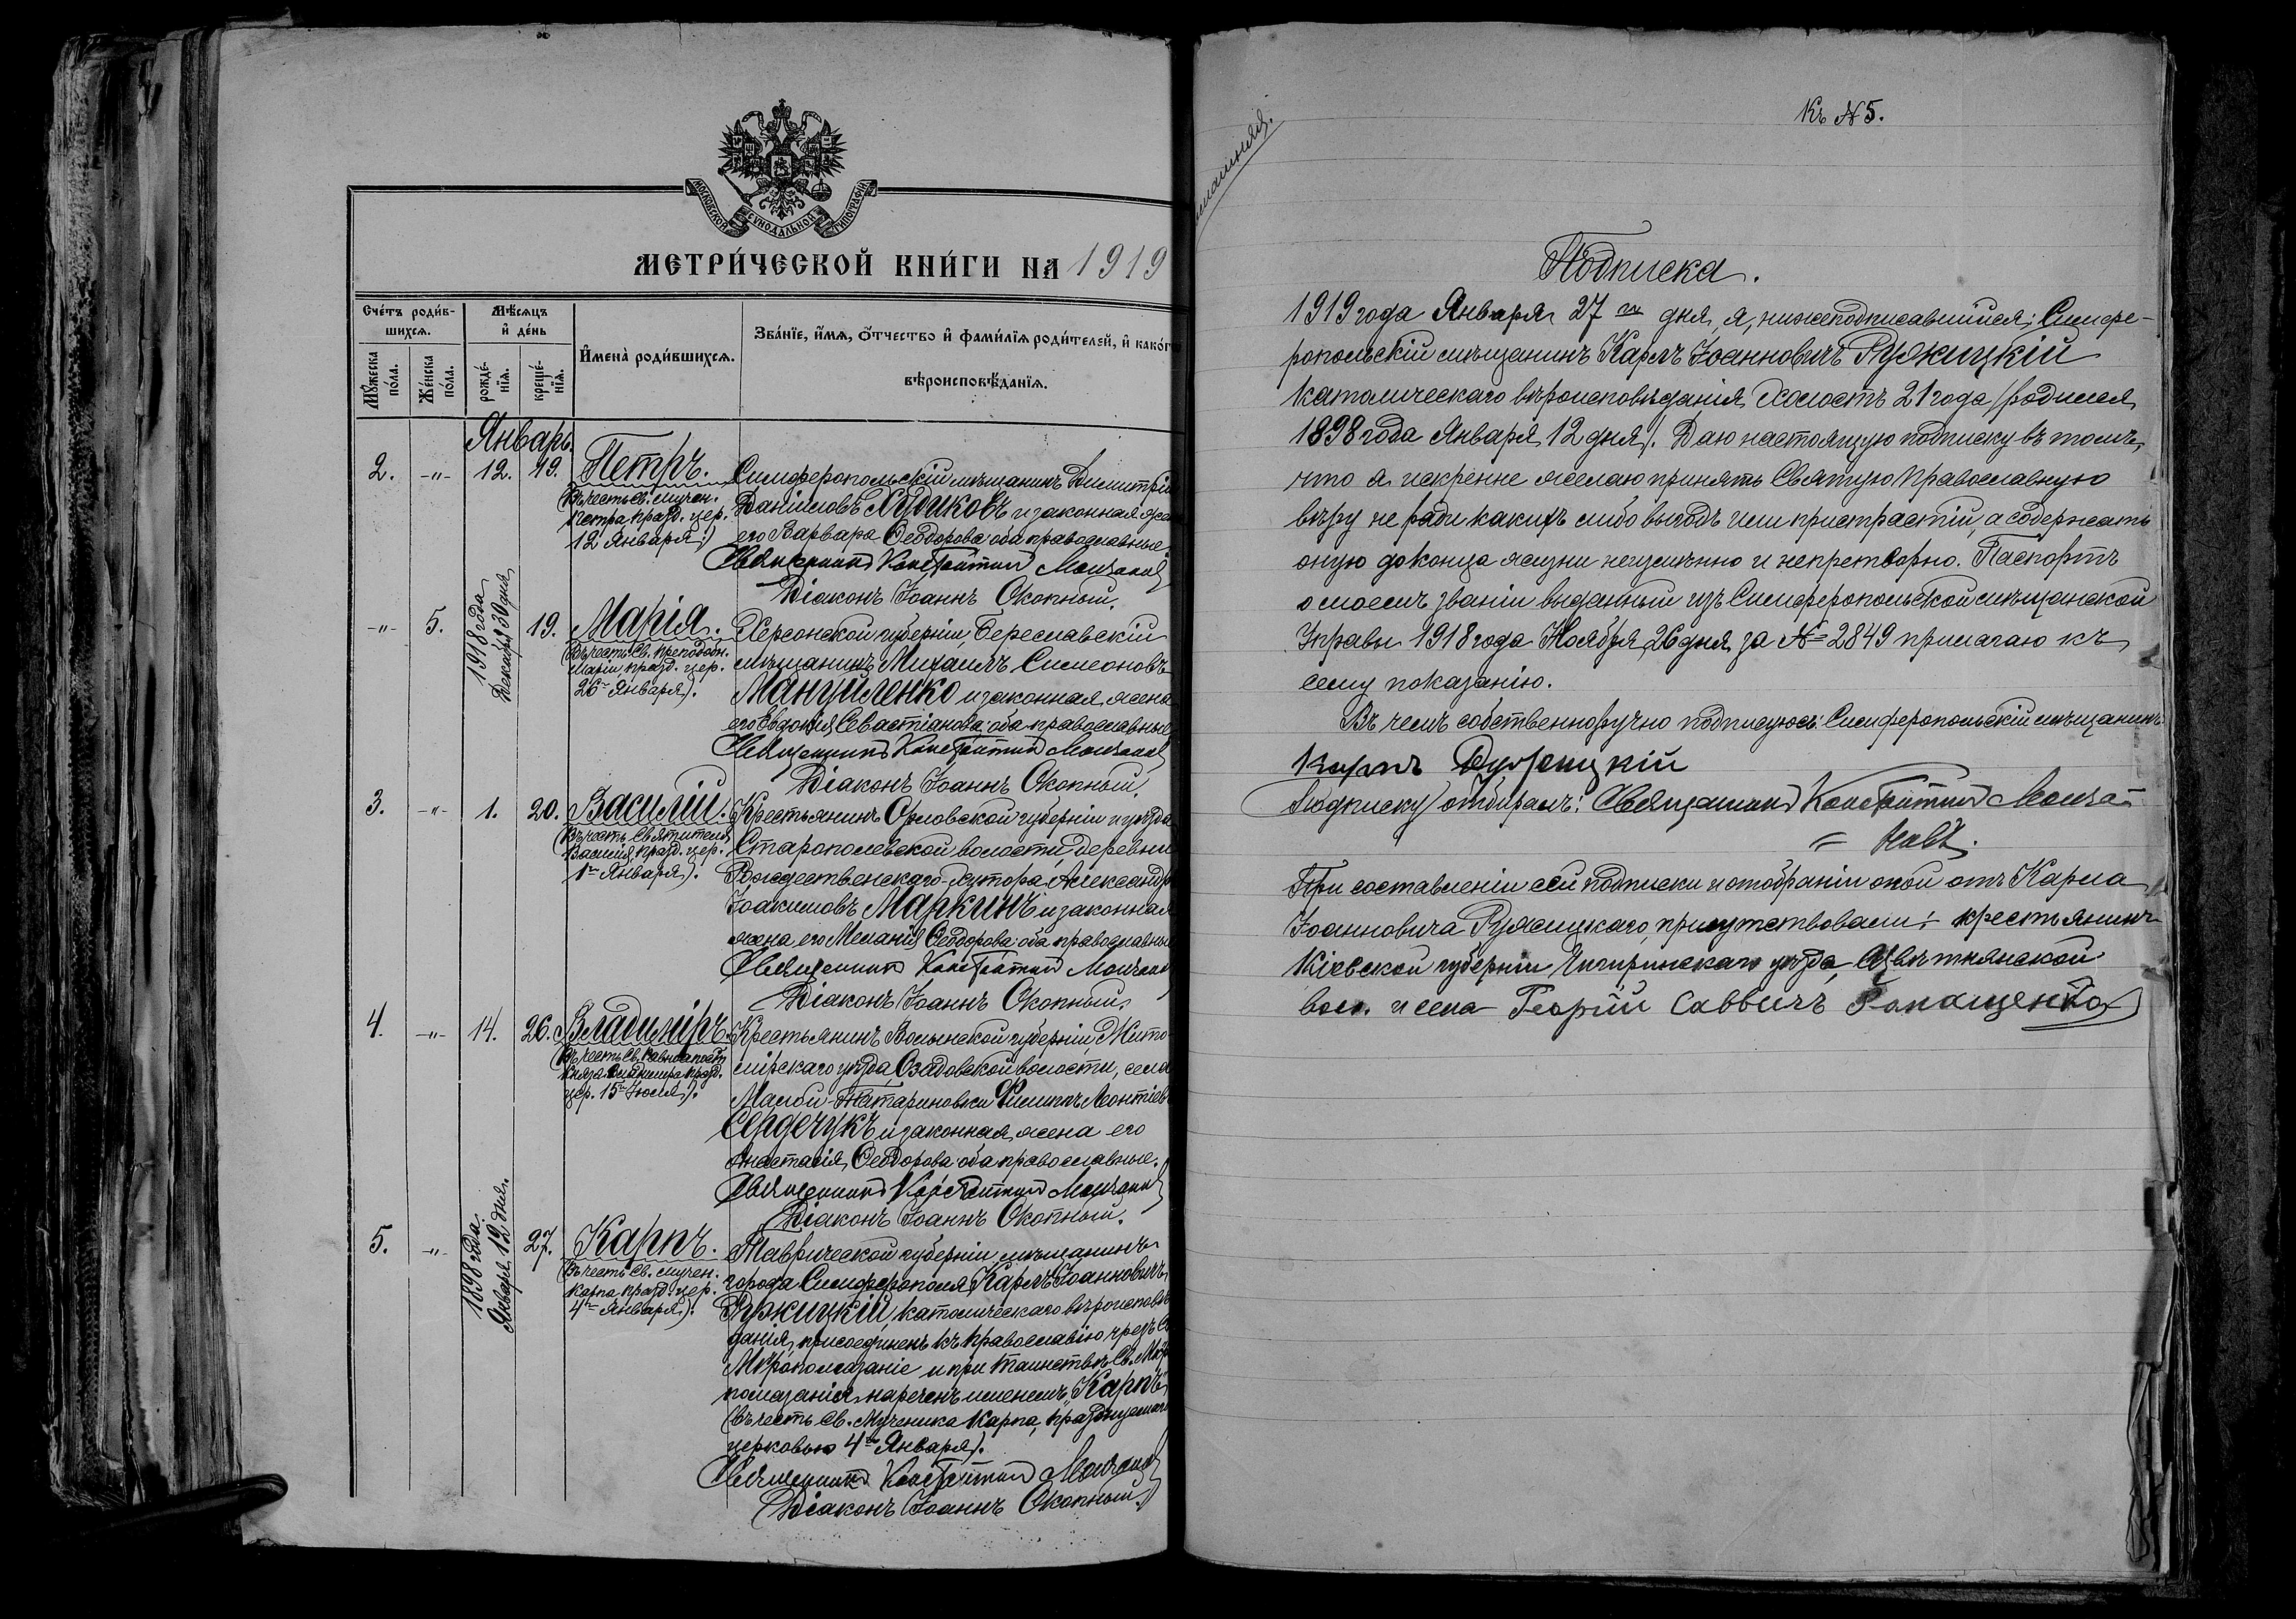 МОСКОВСКОЙ СѴНОДАЛЬНОЙ ТИПОГРАФІИ
МЕТРИ́ЧЕСКОЙ КНИ́ГИ НА 1919
Сче́тъ роди́в-
шихся.
Мѣ́сяцъ
и҆ де́нь
И҆мена̀ роди́вшихся.
Зва́нїе, и҆́мя, ѻ҆́тчество и҆ фами́лїя роди́телей, и҆ како́г
вѣроисповѣ́данїя.
Мꙋ́жеска
по́ла.
Же́нска
по́ла.
рожде́-
нїя.
креще́-
нїя.
Январь.
2. -"- 12. 19. Петръ.
(Въ честь Св. мучен.
Петра празд. цер.
12 Января.)
Симферопольскій мѣщанинъ Димитрій
Даніиловъ и законная же
его Варвара Ѳеодорова оба православные.
Священникъ Константинъ Молчановъ
Діаконъ Іоаннъ Окопный.
-"- 5. 1918 года
Декабря 30 дня 19. Марія.
(Въ честь Св. преподобн.
Маріи, празд. цер.
26го Января).
Херсонской губерніи, Береславскій
мѣщанинъ Михаилъ Симеоновъ
Мануйленко и законная жена
его Евдокія Севастіанова оба православные
Священникъ Константинъ Молчановъ
Діаконъ Іоаннъ Окопный.
3. -"- 1. 20. Василій.
(Въ честь Святителя
Василія, празд. цер.
1го Января).
Крестьянинъ Орловской губерніи и уѣзда
Старополевской волости, деревни
Рождественскаго-Хутора, Александръ
Іоакимовъ Маркинъ и законная
жена его Меланія Ѳеодорова оба православные
Священникъ Константинъ Молчановъ
Діаконъ Іоаннъ Окопный.
4. -"- 14. 26. Владиміръ.
(Въ честь Св. равноапост.
Князя Владиміра празд.
цер. 15го Іюля).
Крестьянинъ Волынской губерніи, Жито-
мірскаго уѣзда, Озадовской волости, села
Малой-Татариновки Филиппъ Леонтіевъ
Сердечукъ и законная жена его
Анастасія Ѳеодорова оба православные.
Священникъ Константинъ Молчановъ
Діаконъ Іоаннъ Окопный.
5. -"- 1898 года
Января 12 дня. 27. Карпъ.
(Въ честь Св. мучен.
Карпа празд. цер.
4го Января).
Таврической губерніи мѣщанинъ
города Симферополя, Карлъ Іоанновичъ
Ружицкій, католическаго вѣроисповѣ
данія, присоединенъ къ Православію чрезъ Св
Мѵропомазаніе и при таинствѣ Св. Мѵро
помазанія нареченъ именемъ „Карпъ"
(въ честь Св. Мученика Карпа, празднуемаго
церковью 4го Января).
Священникъ Константинъ Молчановъ
Діаконъ Іоаннъ Окопный.
Къ № 5.
Подписка.
1919 года Января 27го дня, я, нижеподписавшийся, Симфе-
ропольскій мѣщанинъ Карлъ Іоанновичъ Ружицкій
католическаго вѣроисповѣданія, холостъ 21 года (родился
1898 года Января 12 дня). Даю настоящую подписку въ томъ,
что я искренне желаю принять Святую Православную
вѣру не ради какихъ либо выгодъ или пристрастій, а содержать
оную до конца жизни неизмѣнно и непретворно. Паспортъ
о моемъ званіи выданный изъ Симферопольской мѣщанской
Управы 1918 года Ноября 26 дня за № 2849 прилагаю къ
сему показанію.
Въ чемъ собственноручно подписуюсь: Симферопольскій мѣщанинъ
Карлъ Ружицкій
Подписку отбиралъ: Священникъ Константинъ Молча-
= новъ.
При составленіи сей подписки и отобраніи оной отъ Карла
Іоанновича Ружицкаго, присутствовали: крестьянинъ
Кіевской губерніи Чигиринскаго уѣзда, Цвѣтнянской
вол. и села Георгій Саввичъ